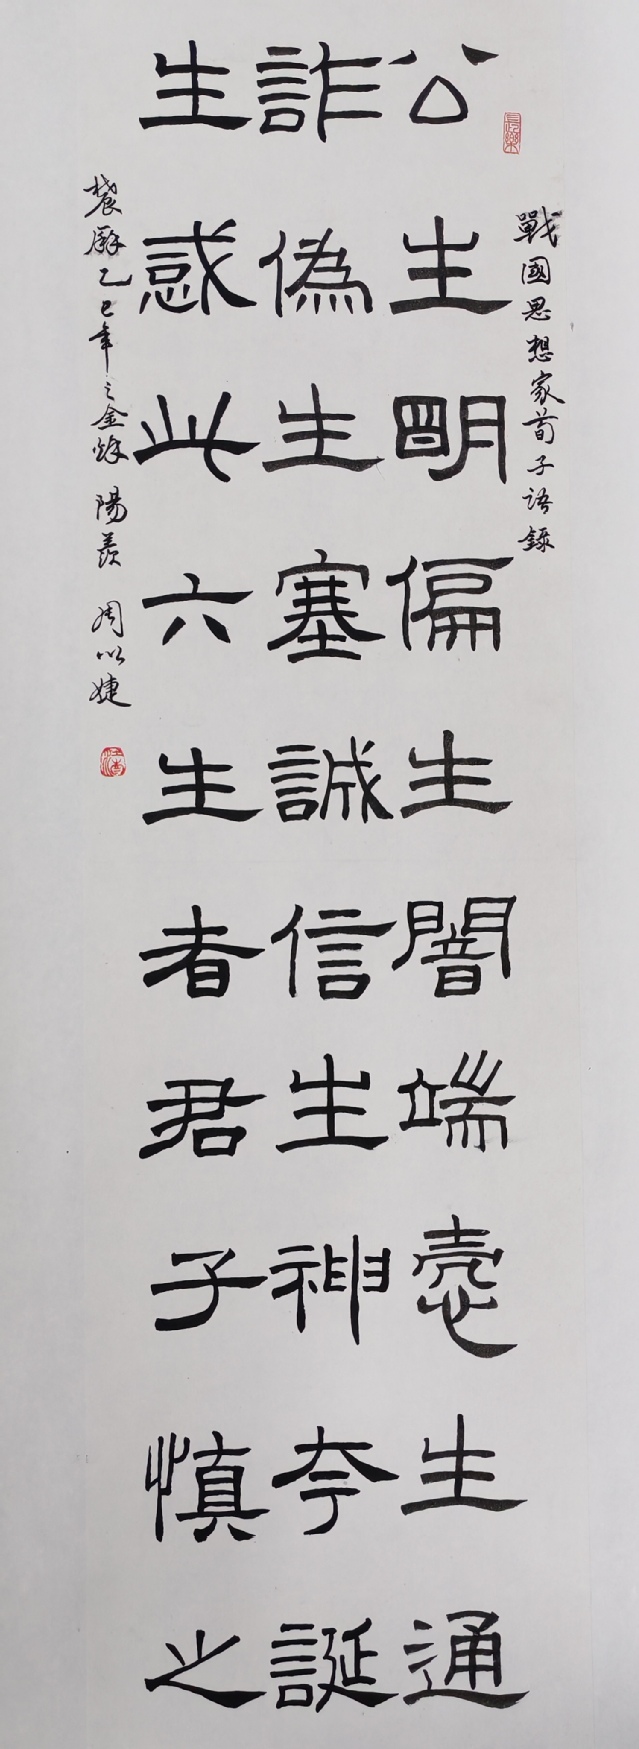 戰國思想家荀子語錄
長樂
公生明偏生闇端悫生通
詐偽生塞誠信生神夸誕
生惑此六生者君子慎之
乙巳年之金秌 陽羨 周以婕